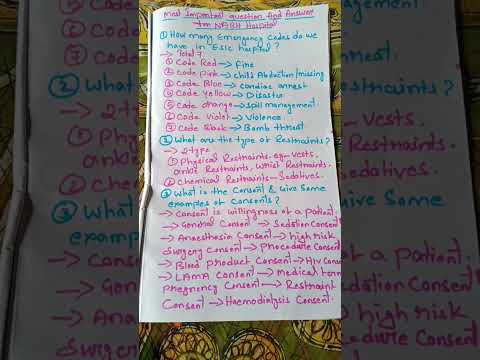 Most Important question And Answer
for NABH Hospital
① How many Emergency Codes do we
have in ESIC hospital?
→ Total 7
① Code Red → Fire
② Code Pink → Child Abduction/missing
③ Code Blue → Cardiac arrest
④ Code Yellow → Disaster
⑤ Code Orange → Spill management
⑥ Code Violet → Violence
⑦ Code Black → Bomb threat
② What are the type of Restraints?
→ 2 type
① Physical Restraints. eg → Vests,
ankle Restraints, Wrist Restraints.
② Chemical Restraints — Sedatives.
③ What is the Consent & Give Some
examples of Consents?
→ Consent is willingness of a patient.
→ General Consent → Sedation Consent
→ Anaesthesia Consent → high risk
Surgery Consent → Procedure Consent
→ Blood product Consent → HIV Consent
→ LAMA Consent → Medical term
pregnancy Consent → Restraint
Consent → Haemodialysis Consent.